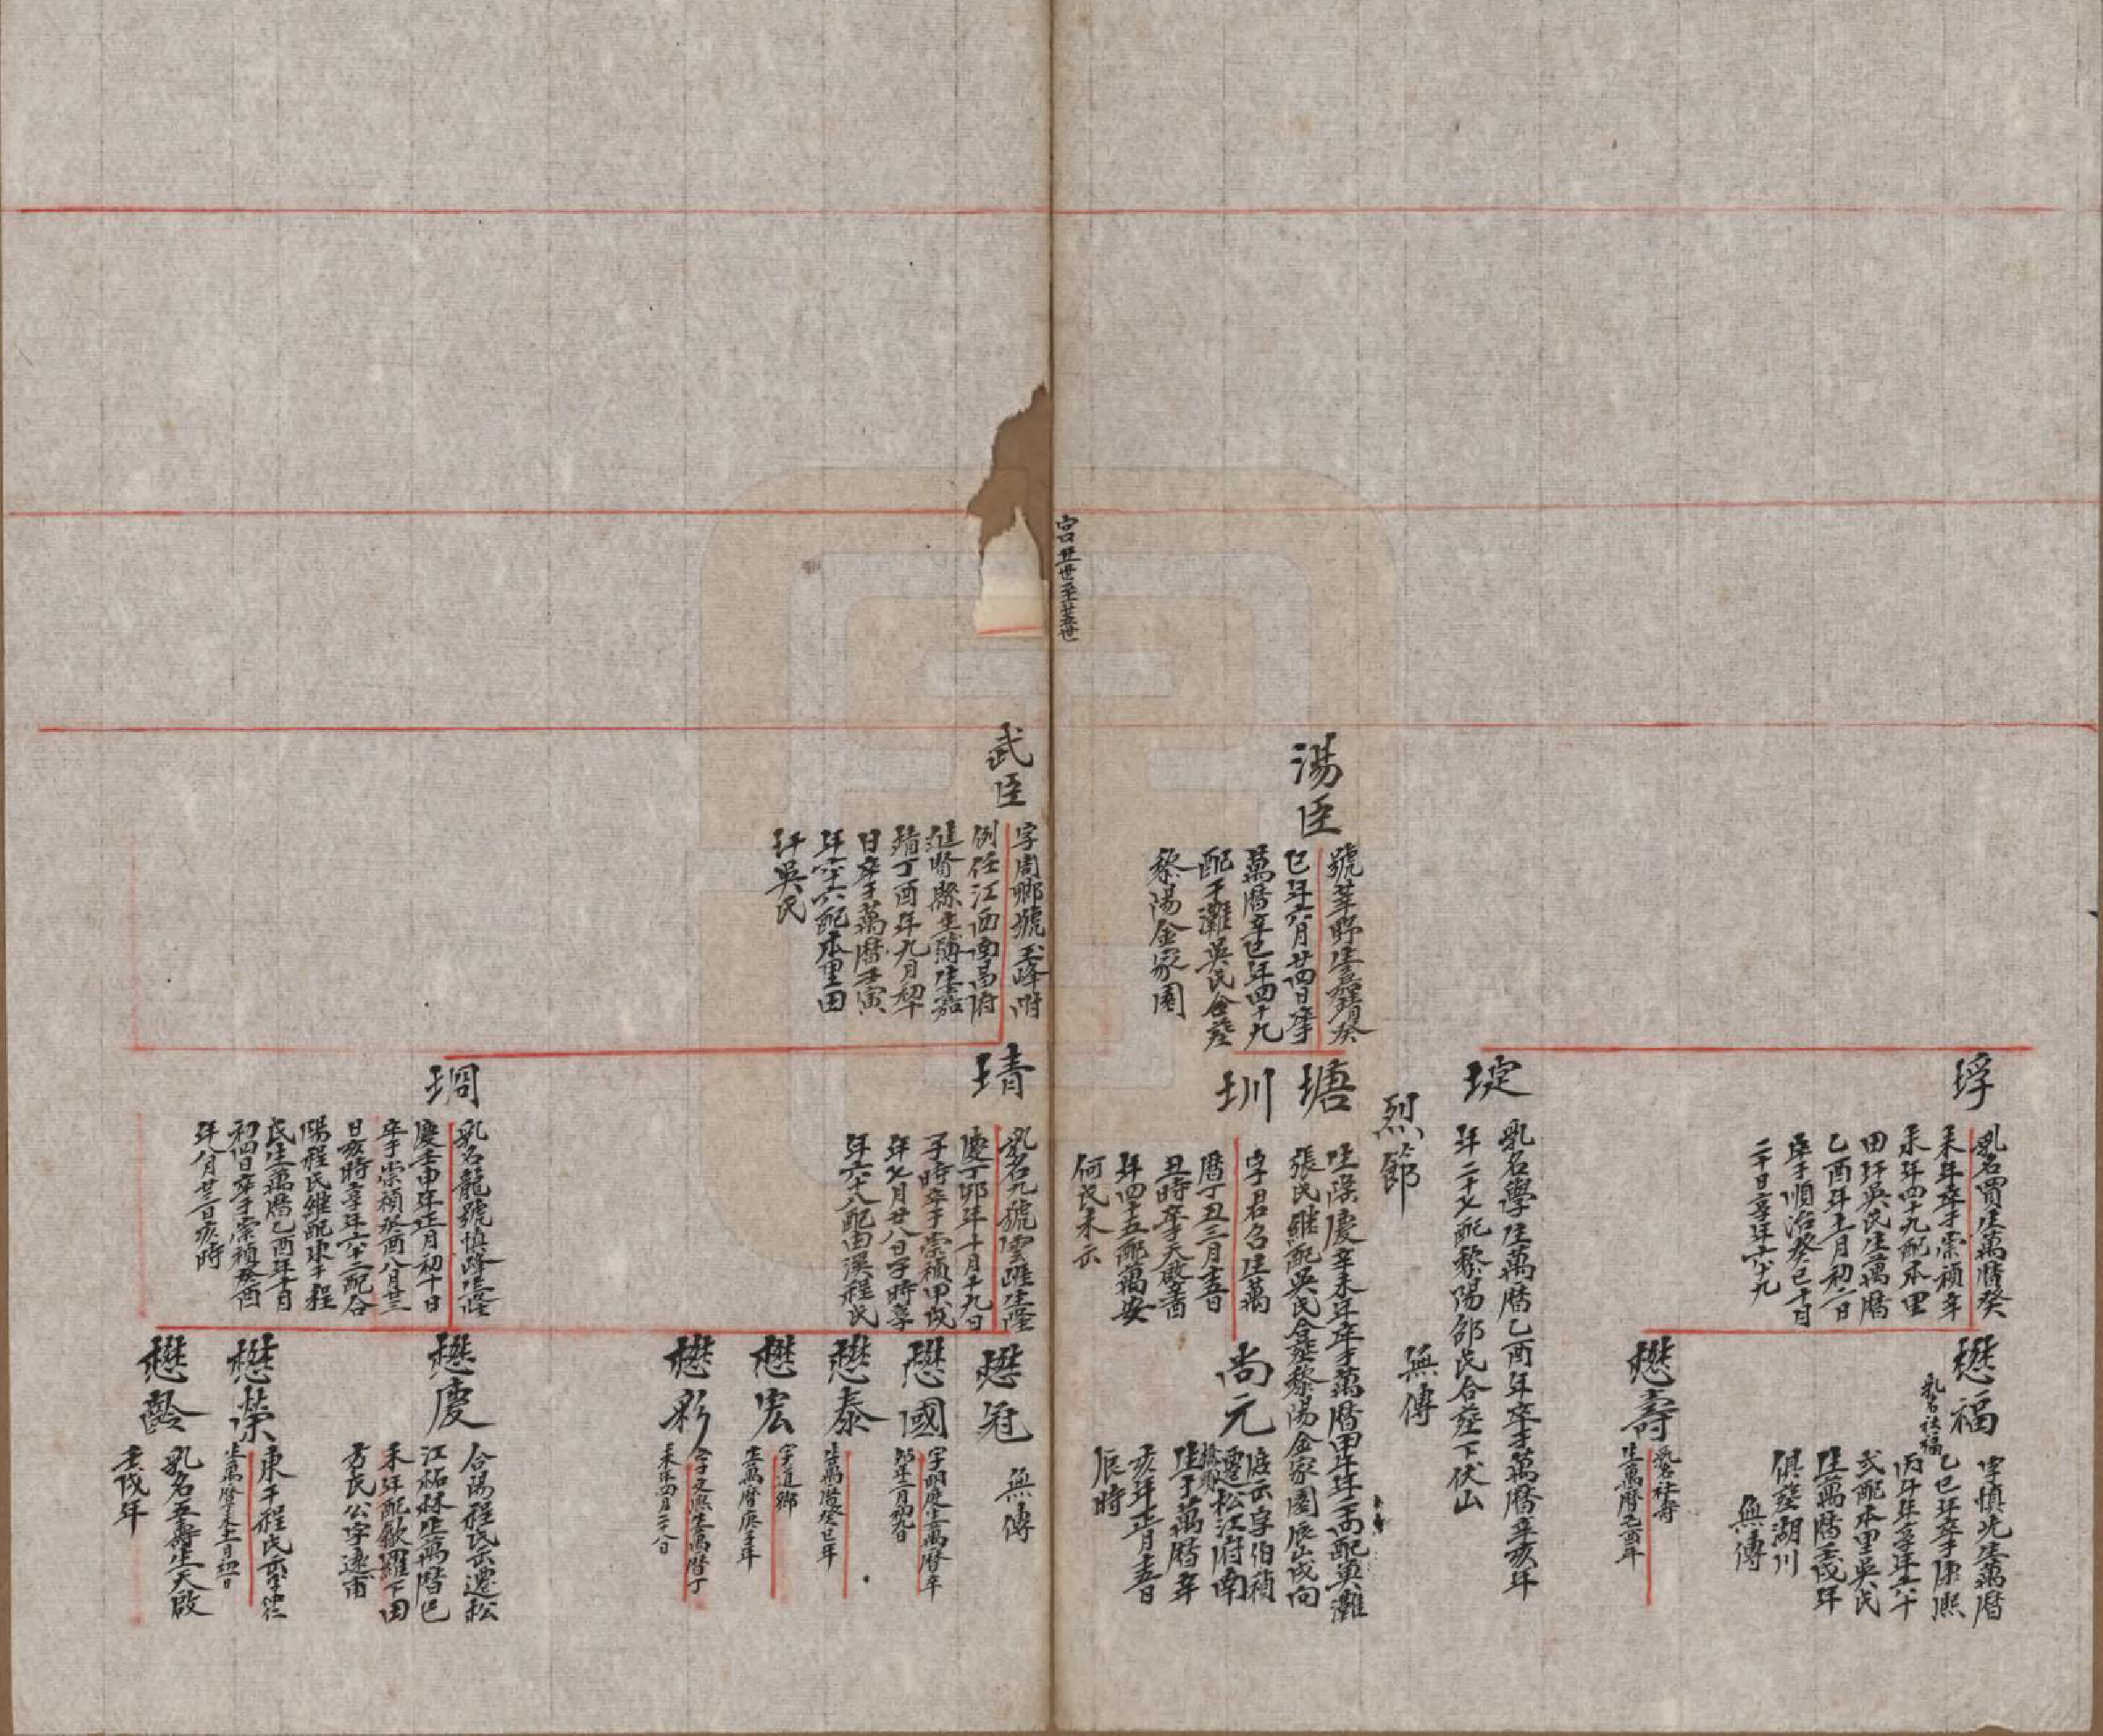 垺
乳名買生萬曆癸
未年卒于崇禎辛
未年四十九配本里
田圩吳氏生萬曆
乙酉年十一月初二日
卒于順治癸巳十月
二十日享年六十九
懋福
乳名社福
字慎先生萬曆
乙巳年卒于康熙
丙午年享年六十
弍配本里吳氏
生萬曆壬戌年
俱葬湖川
無傳
懋壽
乳名社壽
生萬曆己酉年
埞
乳名學生萬曆乙酉年卒于萬曆辛亥年
年二十七配黎陽邵氏合葬下伏山
烈節
無傳
湯臣
號莘野生嘉靖癸
巳年六月廿四日卒于
萬曆辛巳年四十九
配于灘吳氏合葬
黎陽金家園
瑭
生隆慶辛未年卒于萬曆甲午年二十四配黃灘
張氏繼配吳氏合葬黎陽金家園辰山戌向
圳
字君召生萬
曆丁丑三月十五日
丑時卒天啟
年四十五配萬安
何氏未示
尚元
松江府南
生于萬曆辛
亥年正月十五日
辰時
宮口廿一世至廿五世
武臣
字周鄉號玉峰附
例任江西南昌府
進賢縣主簿生嘉
靖丁酉年九月初十
日卒于萬曆壬寅
年六十六配本里田
圩吳氏
靕
乳名九號雲涯生隆
慶丁卯年十月十九日
子時卒于崇禎甲戌
年七月廿八日子時享
年六十八配由溪程氏
懋冠
無傳
懋國
字明庚生萬曆辛
卯年二月初九日
懋泰
生萬曆癸巳年
懋宏
字道鄉
生萬曆庚子年
懋彩
字文熙生萬曆丁
未年四月二十八日
堈
乳名龍號慎峰生隆
慶壬申年正月初十日
卒于崇禎癸酉八月廿三
日亥時享年六十二配合
陽程氏繼配東干程
氏生萬曆乙酉年十月
初四日卒于崇禎癸酉
年八月廿三日亥時
懋慶
合陽程氏示遷松
江柘林生萬曆己
未年配歙羅下田
方氏公字遠甫
懋榮
東干程氏示字
懋齡
乳名五壽生天啟
壬戌年